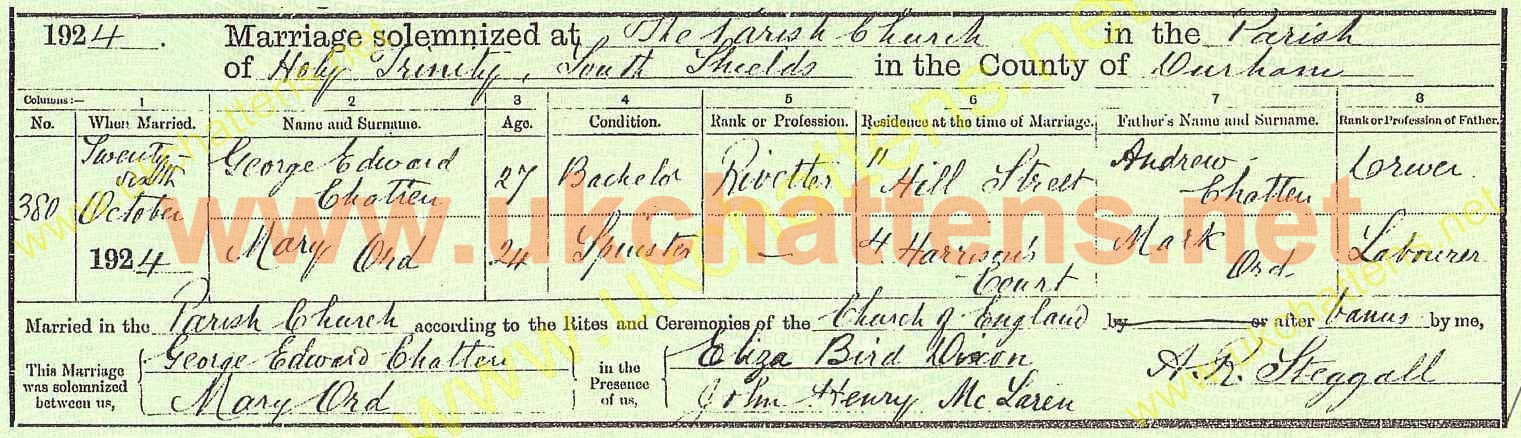 1924. Marriage solemnized at The Parish Church in the Parish
of Holy Trinity, South Shields in the County of Durham
Columns:— 1 2 3 4 5 6 7 8
No. When Married. Name and Surname. Age. Condition. Rank or Profession. Residence at the time of Marriage. Father's Name and Surname. Rank or Profession of Father.
380 Twenty sixth October 1924 George Edward Chatten 27 Bachelor Rivetter Hill Street Andrew Chatten
Mary Ord 24 Spinster — 4 Harrison's Court Mark Ord Labourer
Married in the Parish Church according to the Rites and Ceremonies of the Church of England by or after banns by me,
This Marriage was solemnized between us, George Edward Chatten in the Presence of us, Eliza Bird Dixon A. R. Steggall
Mary Ord John Henry McLaren
www.ukchattens.net